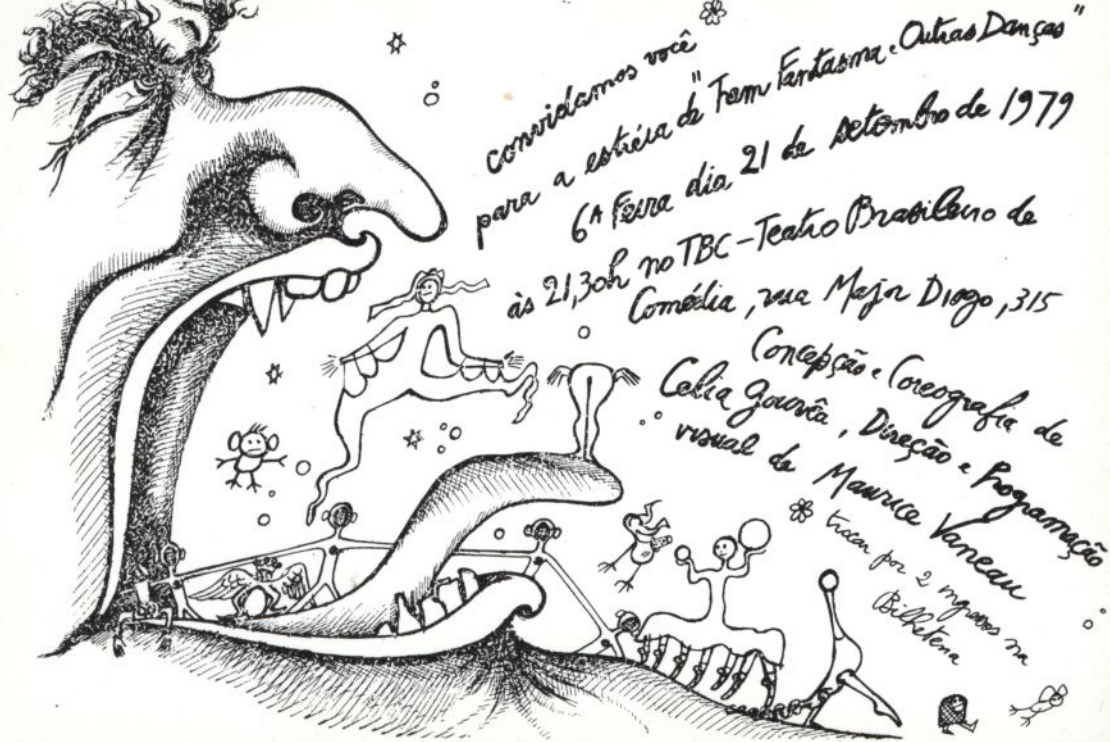 convidamos você
para a estréia de "Trem Fantasma e Outras Danças"
6ª Feira dia 21 de setembro de 1979
às 21,30h no TBC - Teatro Brasileiro de
Comédia, rua Major Diogo, 315
Concepção e Coreografia de
Celia Gouvêa, Direção e Programação
visual de Maurice Vaneau
trocar por 2 ingressos na
Bilheteria